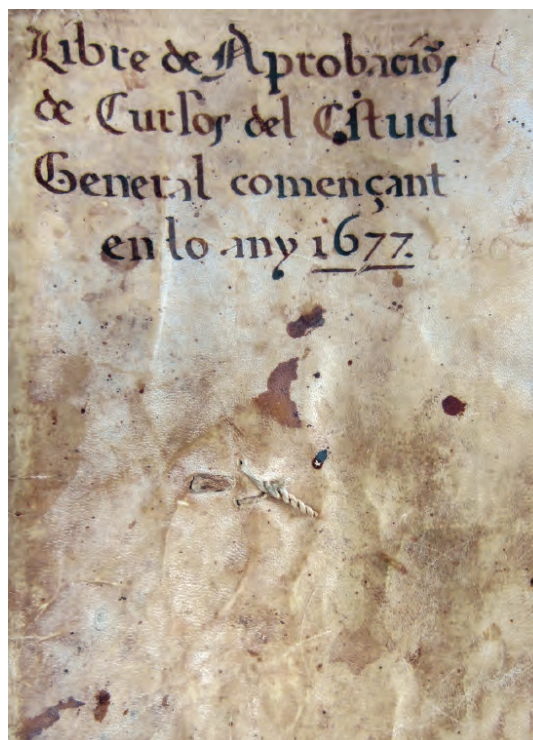 Libre de Aprobaciōs
de Cursos del Estudi
General començant
en lo any 1677.